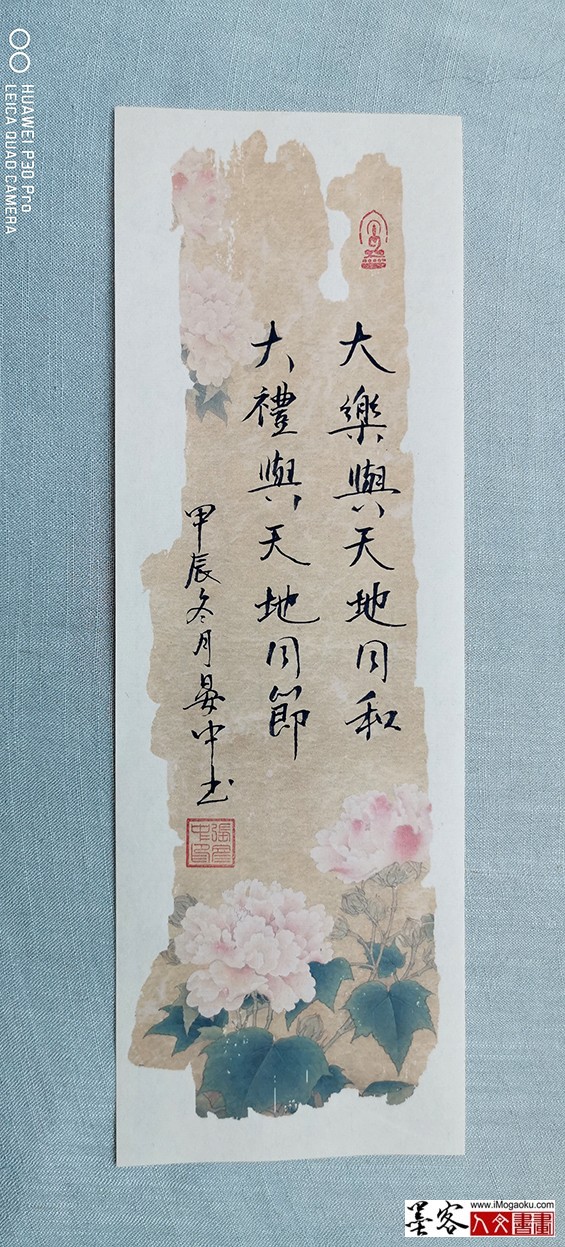 HUAWEI P30 Pro
LEICA QUAD CAMERA
大樂與天地同和
大禮與天地同節
甲辰冬月晏中书
墨客
www.iMogaoku.com
人文書畫